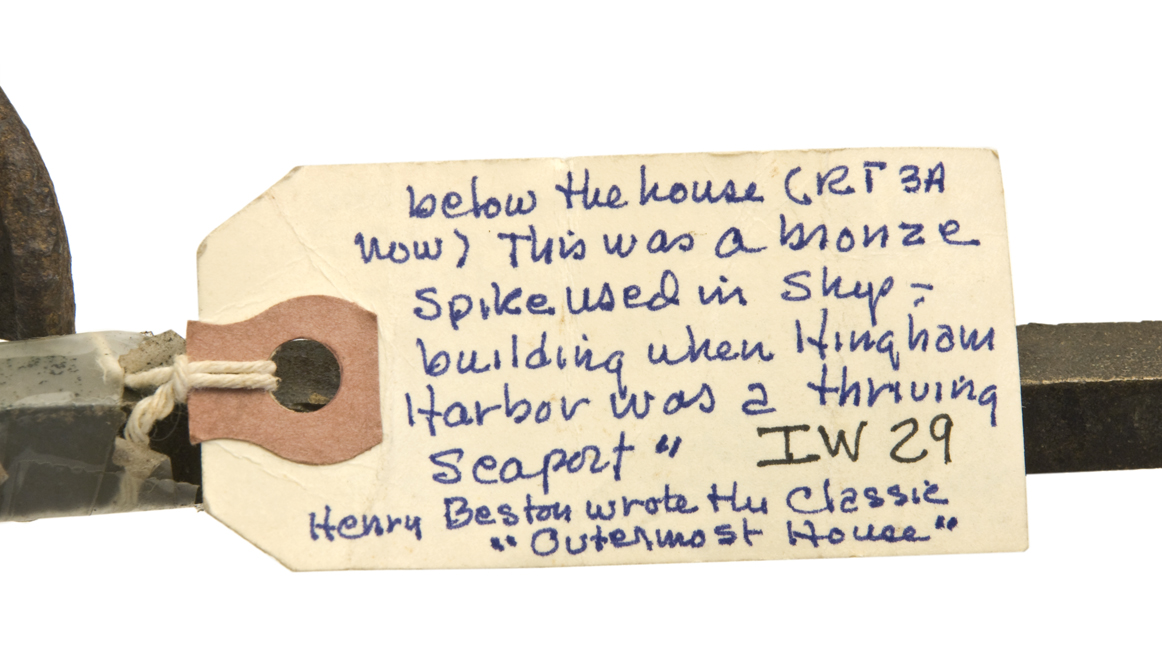 below the house (RT 3A
now) This was a bronze
spike used in Ship-
building when Hingham
Harbor was a thriving
Seaport"
IW 29
Henry Beston wrote the Classic
"Outermost House"